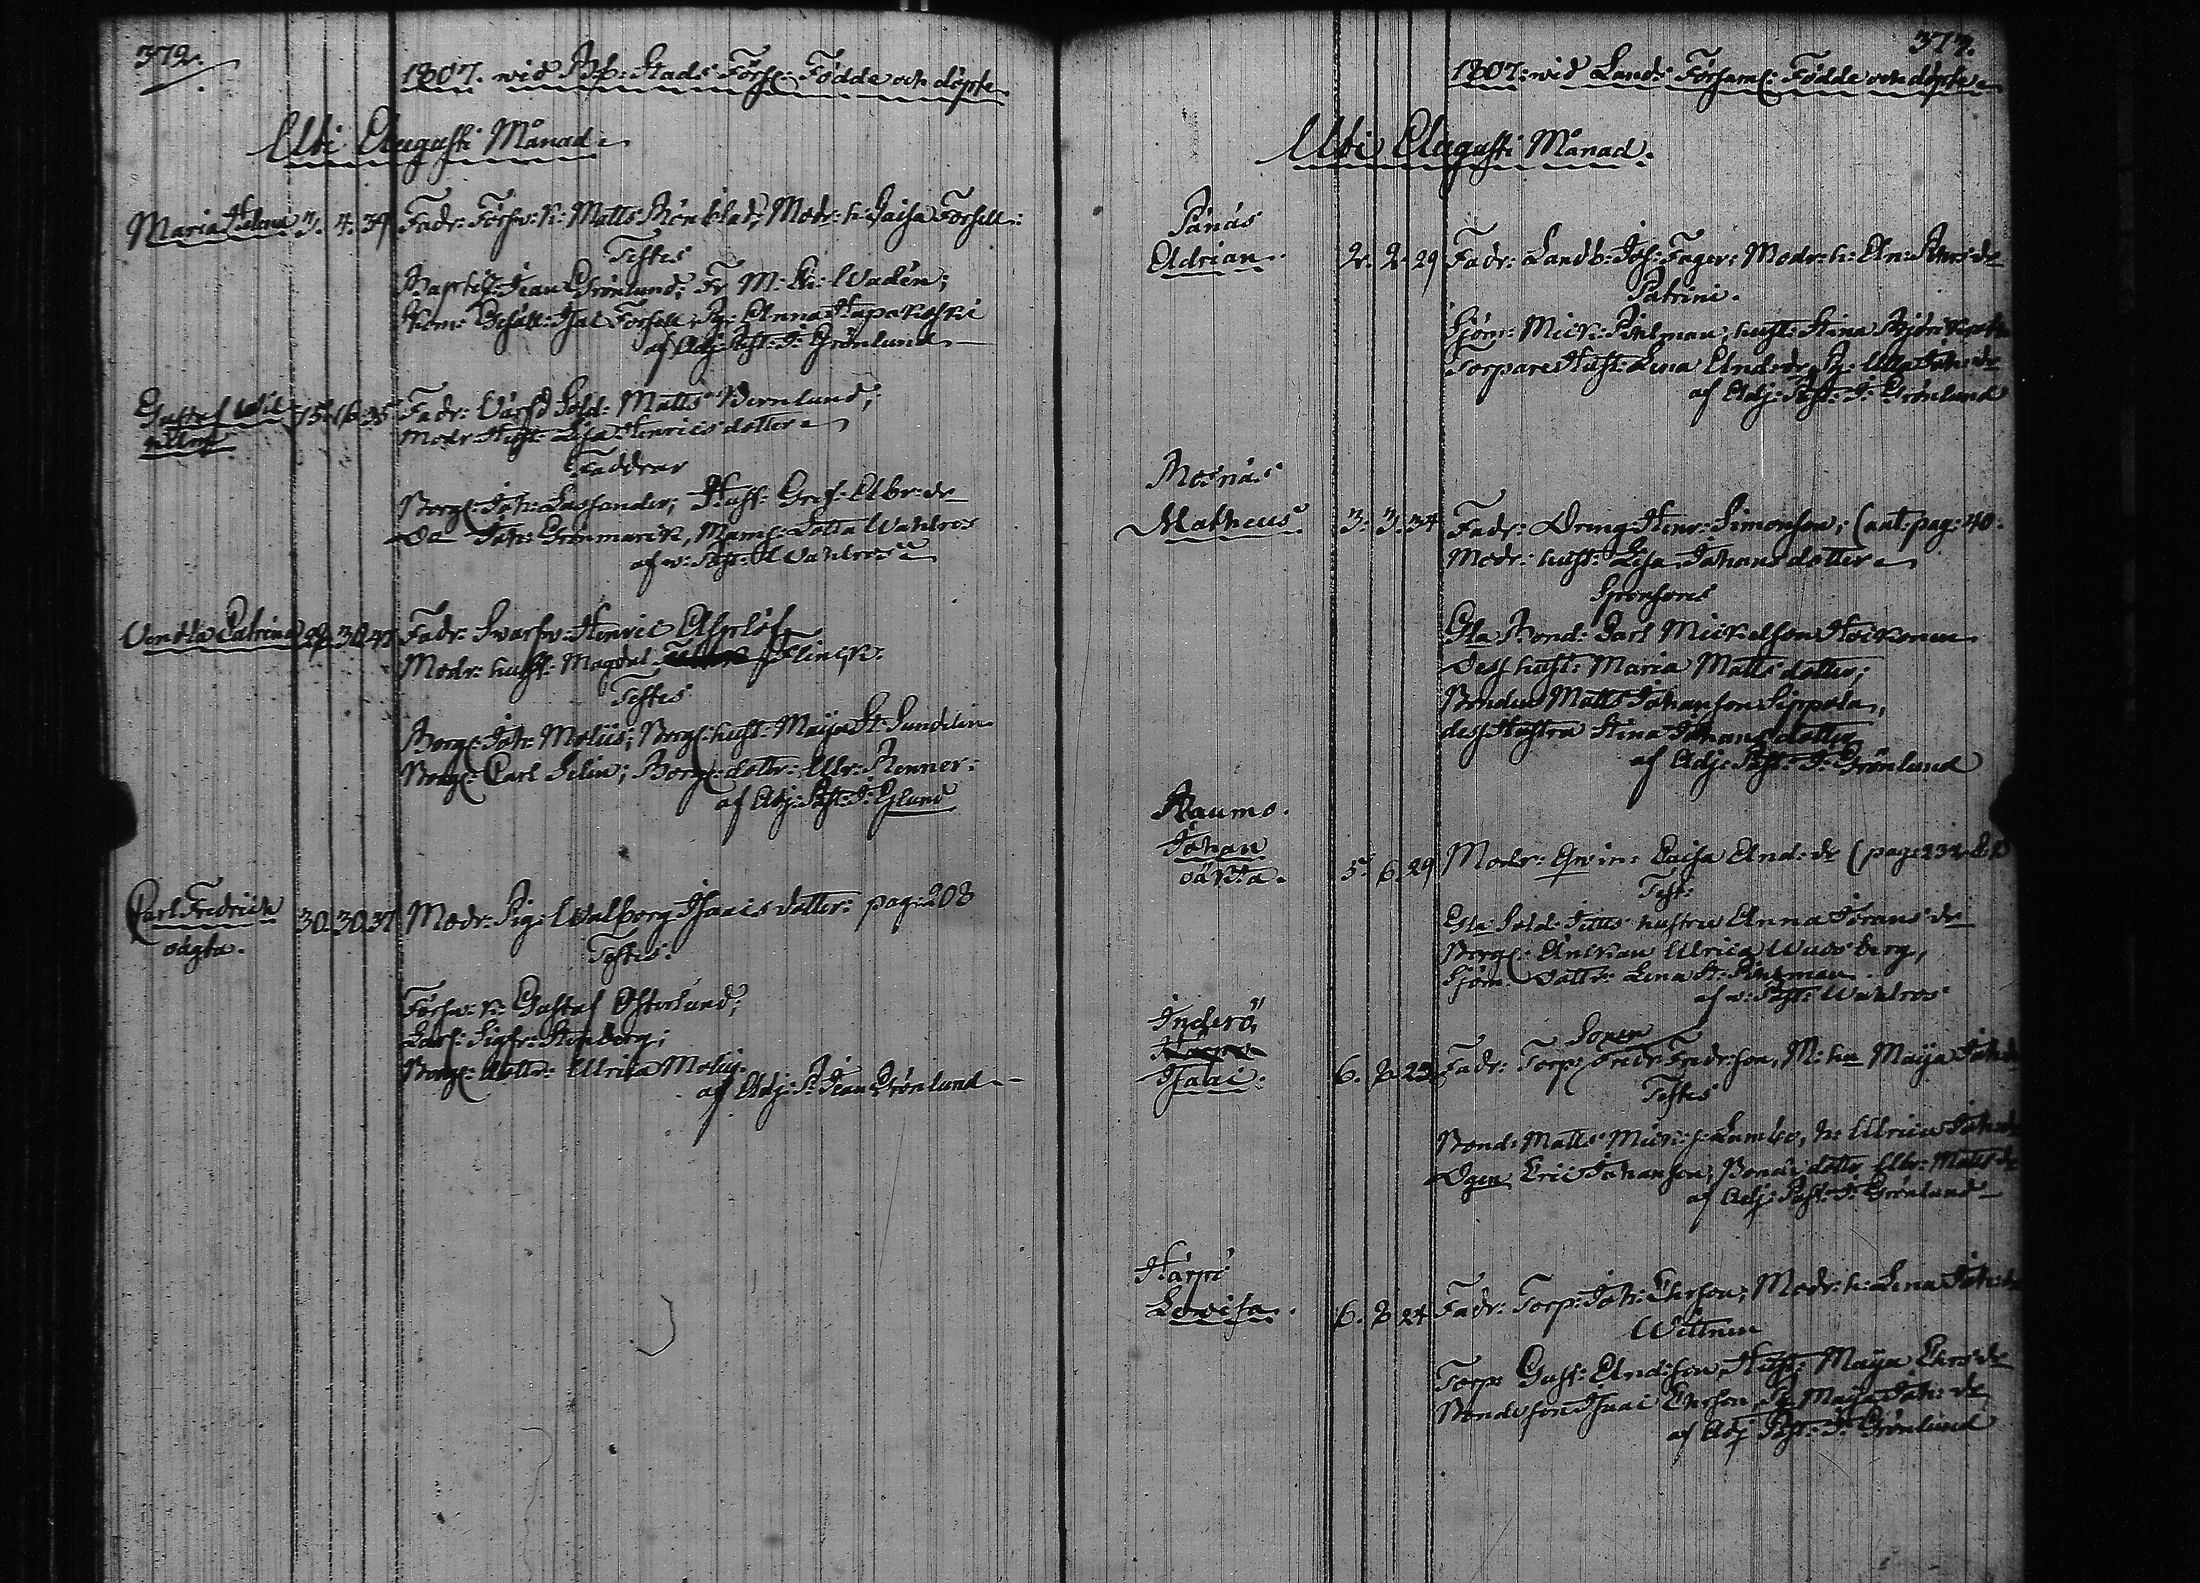 372.
1807. wid Stads Förs: Födde och döpte.
Uti Augusti Månad.
Maria Helena 3. 4. 39 Fadr: Förhv: k: Matts Rönblad; Modr: h: Caisa Forsell:
Testes
Jean Grönlund; Fr M: Wadén;
Gesäll: Isac Forsell, Anna
af Adj: Past: J: Grönlund
Gustaf Wil-
helm 15. 16. 35 Fadr: Matts Wernlund;
Modr: Hust: Lisa Henricsdotter.
Faddrar
Borg: Joh: Lassander; Hust: Gret: Abr: dr
Do Joh: Grönmarck, Mams: Lotta Wahlros
af v: Past: Wahlros
Vendla Catrina 29. 30. 41 Fadr: Svarfv: Henric Asplöf
Modr: hust: Magdal Flinck.
Testes
Borg: Joh: Molin; Borg: hust: Maija St: Sundelin
Borg: Carl Selin; Borg: dottr: Ulr: Renner:
af Adj: Past: J: Eglund
Carl Fredrick 30. 30. 37 Modr: Pig: Walborg Isaacsdotter: pag: 208
oägta.
Testes:
Gustaf Österlund;
Sigfr: Stenberg;
Borg: dottr: Ulrika Molin.
af Adj: P: Jean Grönlund
373.
1807: wid Lands Församl: Födde och döpte.
Uti Augusti Månad.
Pånäs
Adrian. 2. 2. 29 Fadr: Landb: Joh: Fager: Modr: h: An: Anders: dr
Patrini.
Sjöm: Mick: Pihlman, hust: Stina Björkqvist
Torpare Hust: Lena And: dr, Pig: Ulla Joh: dr
af Adj: Past: J: Grönlund
Mosnäs
Matheus 3. 3. 34 Fadr: Dreng: Henr: Simonson; (ant: pag: 40.
Modr: hust: Lisa Johansdotter.
Sponsores
Gla Bond: Carl Mickelson Hoikonen
Dess hust: Maria Mattsdotter;
Bonden Matts Johanson Sippola,
dess Hustru Stina Johansdotter
af Adj: Past: J: Grönlund
Raumo.
Johan
oäkta. 5. 6. 29 Modr: Qvin: Caisa And: dr (pag: 234
Test:
Gla Sold: hustru Anna Jörans: dr
Borg: Enkan Ulrica Wadsberg,
Sjöm: Dottr: Lena St: Pihlman
af v: Past: Wahlros
Inderö
Sonen
Isaac: 6. 7. 23 Fadr: Torp: Fredr: Fredr: son, M: hu Maija Joh: dr
Testes
Bond: Matts Mick: s: Lambo, h: Ulrica Joh: dr
Dgen Eric Johanson; Bond: dottr Ulr: Matts: dr
af Adj: Past: J: Grönlund
Harpö
Lovisa. 6. 7. 24 Fadr: Torp: Joh: Ehrson; Modr: h: Lena Joh: dr
Wittnen
Torp: Gust: And: son, Hust: Maija Ehrs: dr
Bondeson Isaac Ehrson, Pig Maja Joh: dr
af Adj: Past: J: Grönlund